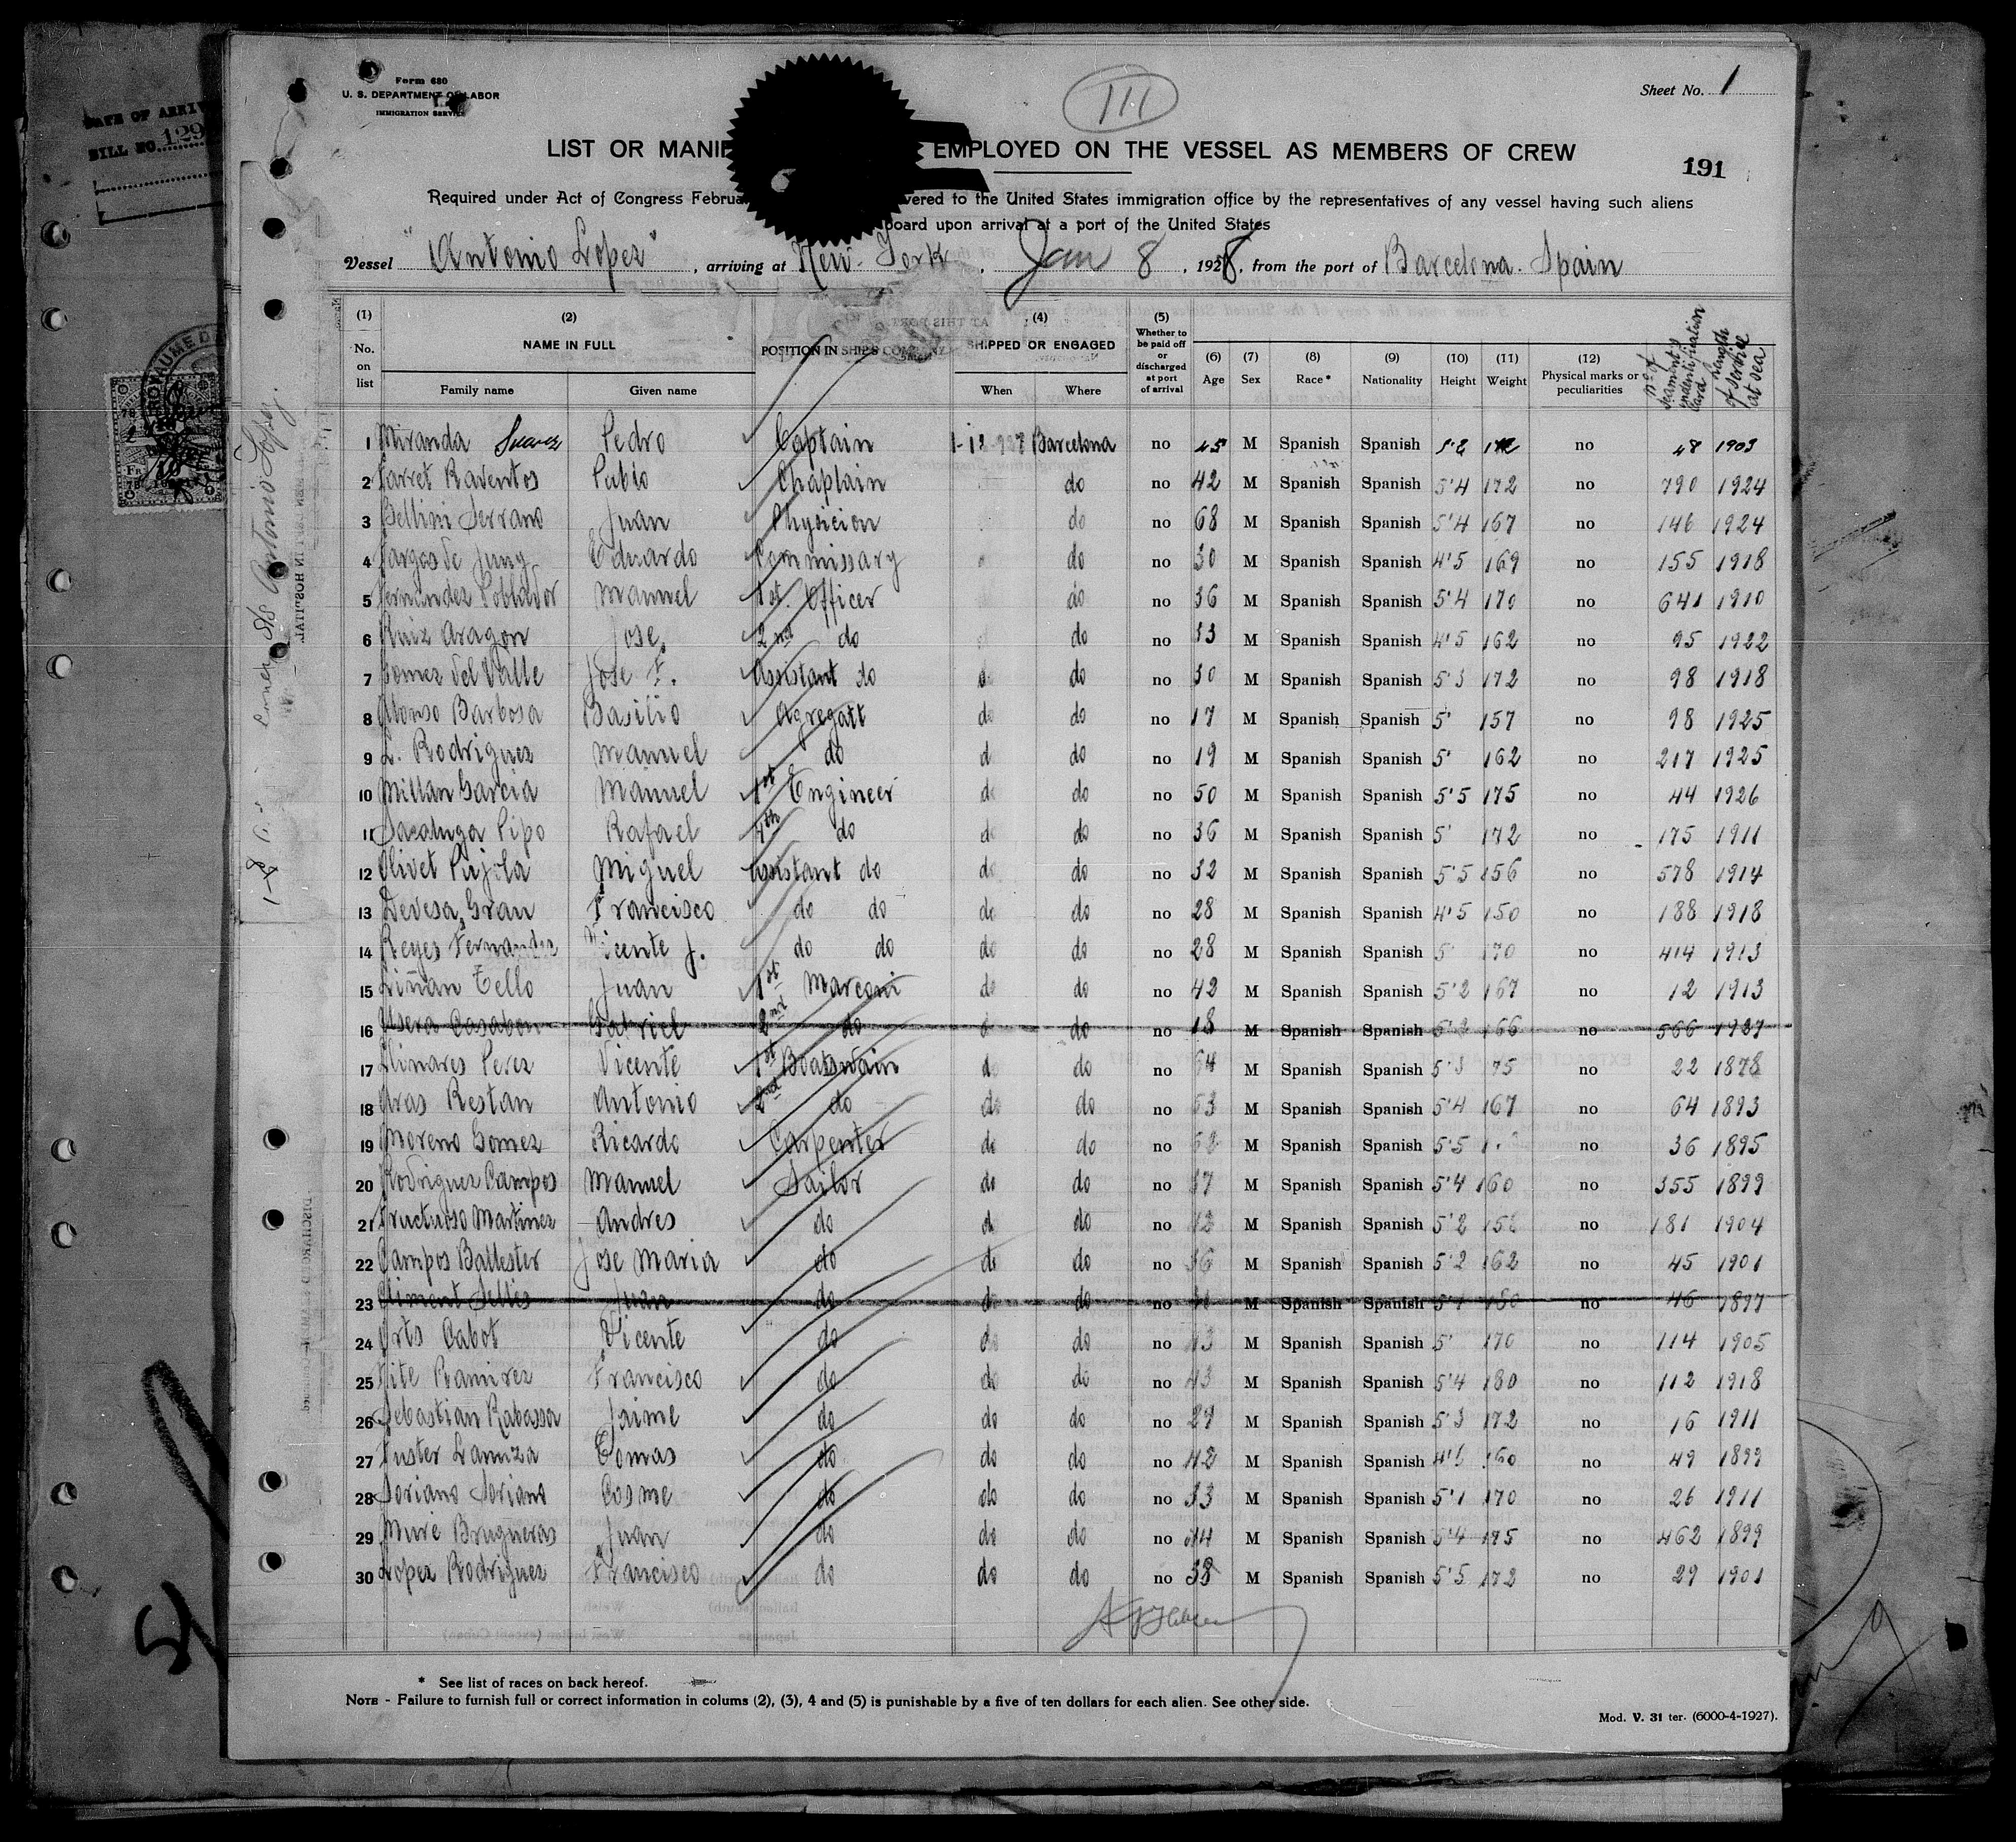 Form 680
U. S. DEPARTMENT OF LABOR
IMMIGRATION SERVICE
111
Sheet No. 1
LIST OR MANIF EMPLOYED ON THE VESSEL AS MEMBERS OF CREW
191
Required under Act of Congress Februa vered to the United States immigration office by the representatives of any vessel having such aliens
board upon arrival at a port of the United States
Vessel "Antonio Lopez", arriving at New-York, Jan 8, 1928, from the port of Barcelona. Spain
(1) No. on list
(2) NAME IN FULL
Family name Given name
POSITION IN SHIP'S
(4) SHIPPED OR ENGAGED
When Where
(5) Whether to be paid off or discharged at port of arrival
(6) Age
(7) Sex
(8) Race *
(9) Nationality
(10) Height
(11) Weight
(12) Physical marks or peculiarities
Nº of seamen's indentification card
Length of service at sea
1 Miranda Suarez Pedro Captain Barcelona no 45 M Spanish Spanish 5'2 no 48 1903
2 Raventos Pablo Chaplain do no 42 M Spanish Spanish 5'4 172 no 790 1924
3 Bellini Serrano Juan Physicion do no 68 M Spanish Spanish 5'4 167 no 146 1924
4 Eduardo Commissary do no 30 M Spanish Spanish 4'5 169 no 155 1918
5 Fernandez Poblador Manuel 1st. Officer do no 36 M Spanish Spanish 5'4 170 no 641 1910
6 Ruiz Aragon Jose 2nd do do no 33 M Spanish Spanish 4'5 162 no 95 1922
7 Gomez del Valle Jose F. Assistant do do no 30 M Spanish Spanish 5'3 172 no 98 1918
8 Alonso Barbosa Basilio Agregatt do do no 17 M Spanish Spanish 5' 157 no 98 1925
9 L. Rodriguez Manuel do do do no 19 M Spanish Spanish 5' 162 no 217 1925
10 Millan Garcia Manuel 1st Engineer do do no 50 M Spanish Spanish 5'5 175 no 44 1926
11 Pipo Rafael 4th do do do no 36 M Spanish Spanish 5' 172 no 175 1911
12 Olivet Pujola Miguel Assistant do do do no 32 M Spanish Spanish 5'5 156 no 578 1914
13 Devesa Gran Francisco do do do do no 28 M Spanish Spanish 4'5 150 no 188 1918
14 Reyes Fernandez Vicente J. do do do do no 28 M Spanish Spanish 5' 170 no 414 1913
15 Liñan Tello Juan 1st Marconi do do no 42 M Spanish Spanish 5'2 167 no 12 1913
16 Usera Casabon Gabriel 2nd do do do no 18 M Spanish Spanish 166 no 566 1927
17 Llinares Perez Vicente 1st Boatswain do do no M Spanish Spanish 5'3 no 22 1878
18 Aras Restan Antonio 2nd do do do no 53 M Spanish Spanish 5'4 167 no 64 1893
19 Moreno Gomez Ricardo Carpenter do do no M Spanish Spanish 5'5 no 36 1895
20 Rodriguez Campos Manuel Sailor do do no M Spanish Spanish 5'4 160 no 355 1899
21 Fructuoso Martinez Andres do do do no M Spanish Spanish 5'2 no 181 1904
22 Campos Ballester Jose Maria do do do no M Spanish Spanish 5'2 162 no 45 1901
23 Climent Selles Juan do do do no M Spanish Spanish no 46 1897
24 Orts Cabot Vicente do do do no 43 M Spanish Spanish 5' 170 no 114 1905
25 Ramirez Francisco do do do no 43 M Spanish Spanish 5'4 180 no 112 1918
26 Sebastian Rabassa Jaime do do do no 29 M Spanish Spanish 5'3 172 no 16 1911
27 Fuster Lanuza Tomas do do do no 42 M Spanish Spanish 160 no 49 1899
28 Soriano Soriano Cosme do do do no 33 M Spanish Spanish 5'1 170 no 26 1911
29 Mure Brugueras Juan do do do no 44 M Spanish Spanish 5'4 175 no 462 1899
30 Lopez Rodriguez Francisco do do do no 38 M Spanish Spanish 5'5 172 no 29 1901
* See list of races on back hereof.
NOTE - Failure to furnish full or correct information in colums (2), (3), 4 and (5) is punishable by a five of ten dollars for each alien. See other side.
Mod. V. 31 ter. (6000-4-1927).
BILL NO. 129
S/S Antonio Lopez.